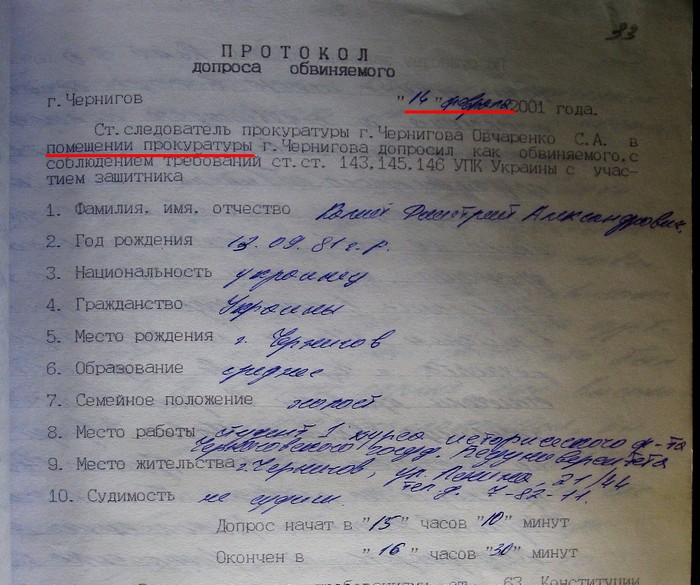 83
ПРОТОКОЛ
допроса обвиняемого
г.Чернигов "14" февраля 2001 года.
Ст.следователь прокуратуры г.Чернигова Овчаренко С.А. в
помещении прокуратуры г.Чернигова допросил как обвиняемого,с
соблюдением требований ст.ст. 143.145.146 УПК Украины с учас-
тием защитника
1. Фамилия, имя, отчество Дмитрий Александрович
2. Год рождения 13.09.81 г.р.
3. Национальность украинец
4. Гражданство Украины
5. Место рождения г. Чернигов
6. Образование среднее
7. Семейное положение холост
8. Место работы студент 1 курса исторического ф-та
Черниговского педуниверситета
9. Место жительства г.Чернигов, ул. Ленина, 21/44
тел. д. 7-82-11.
10. Судимость не судим.
Допрос начат в "15" часов "10" минут
Окончен в "16" часов "30" минут
63 Конституции